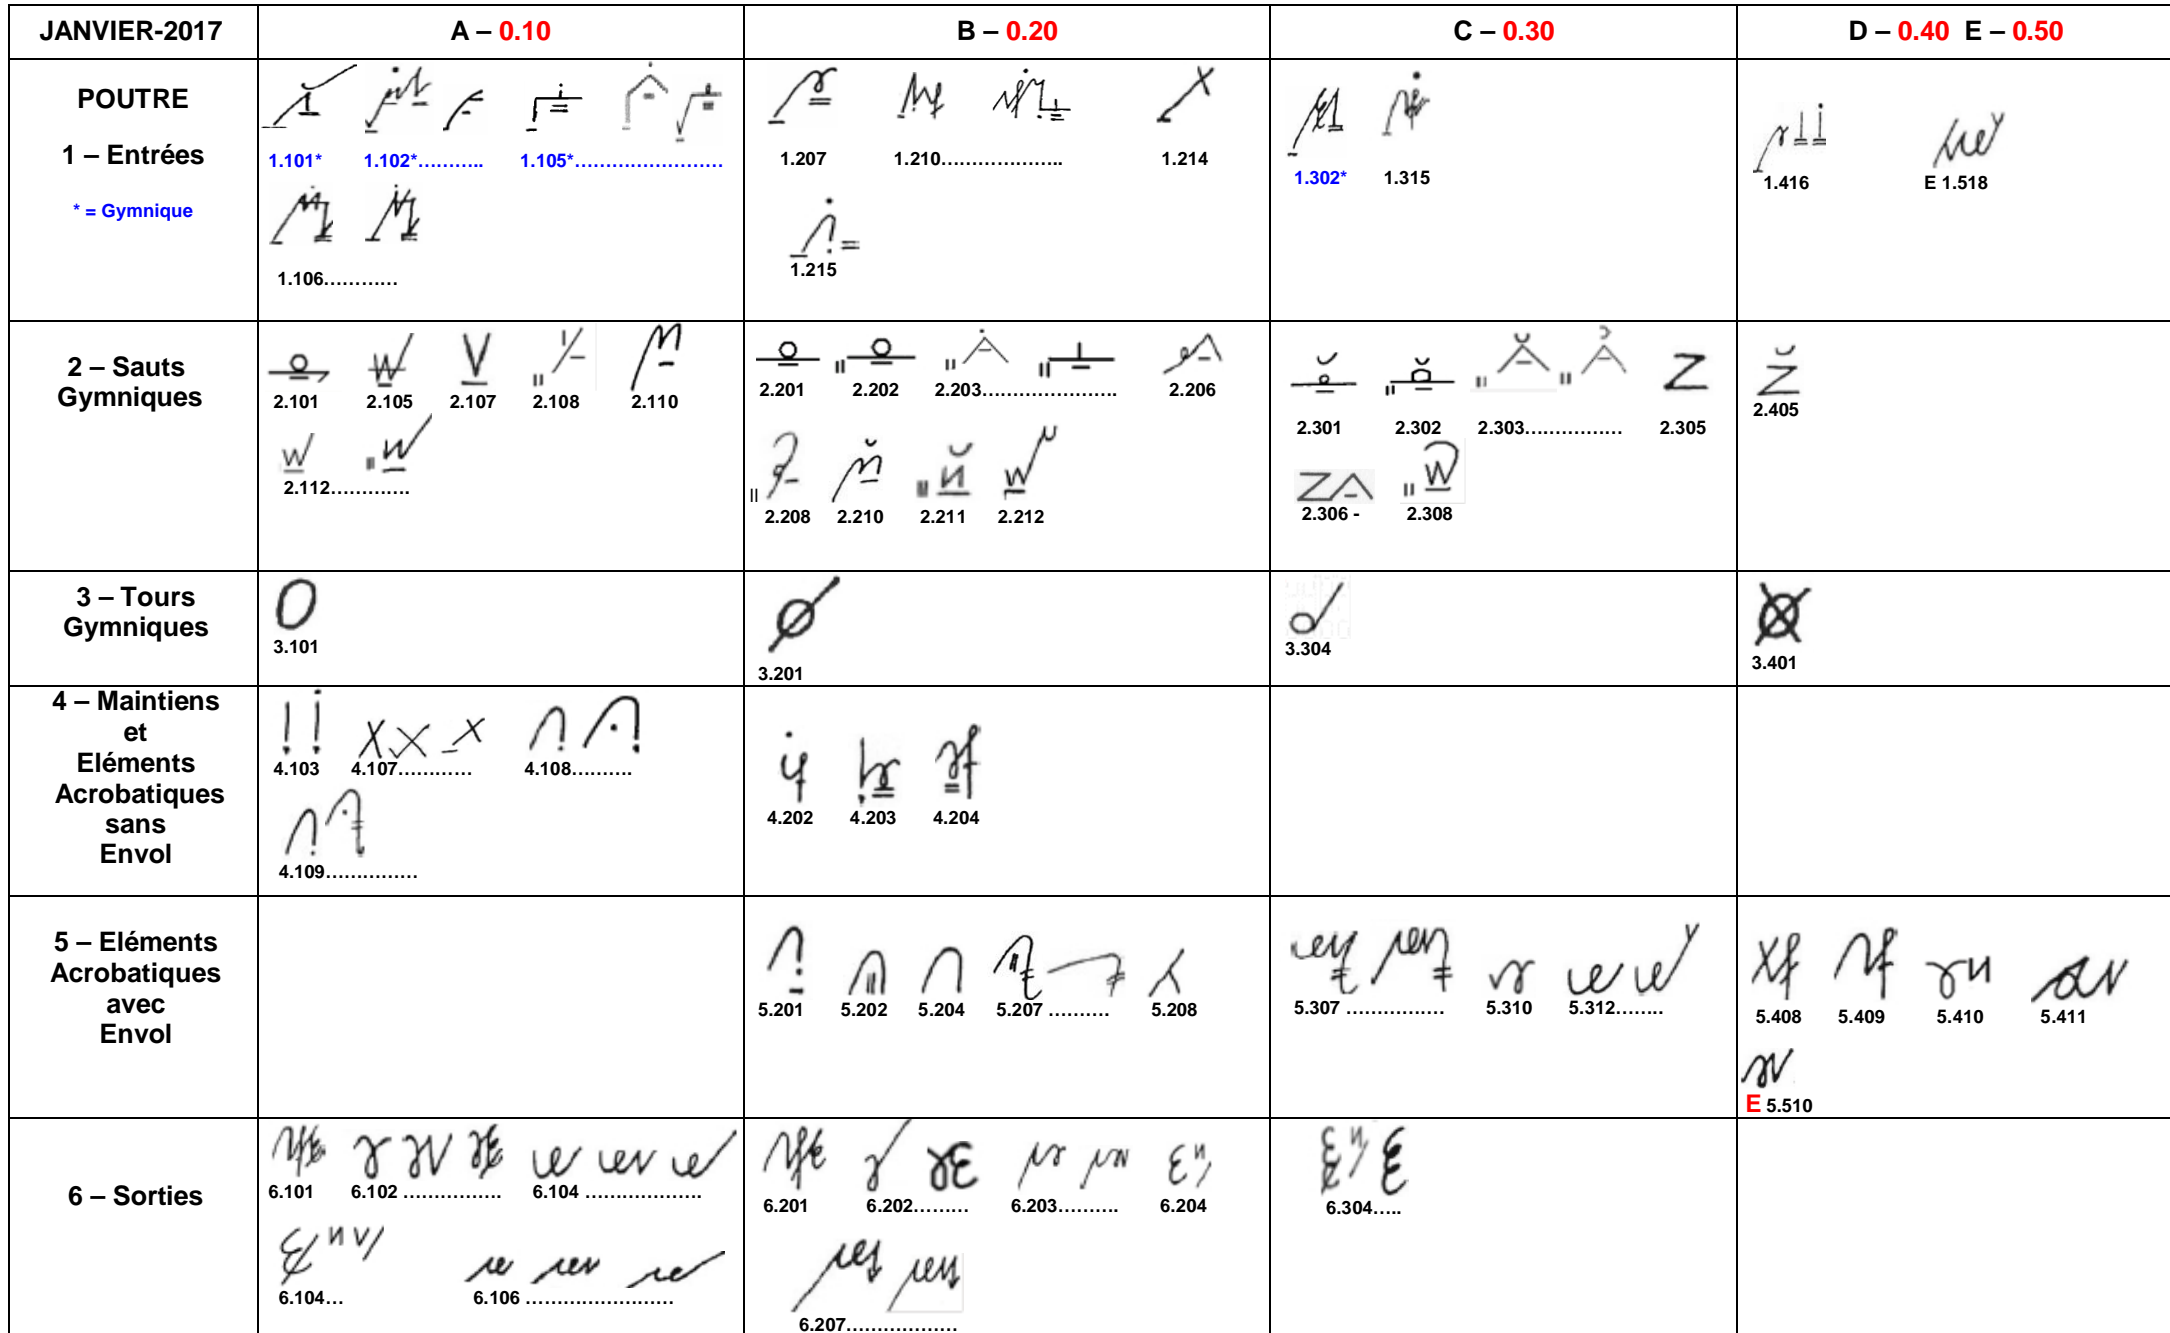 JANVIER-2017 A – 0.10 B – 0.20 C – 0.30 D – 0.40 E – 0.50
POUTRE
1 – Entrées
* = Gymnique
1.101* 1.102*……….. 1.105*……………………
1.106…………
1.207 1.210……………….. 1.214
1.215
1.302* 1.315
1.416 E 1.518
2 – Sauts
Gymniques
2.101 2.105 2.107 2.108 2.110
2.112………….
2.201 2.202 2.203………………….. 2.206
2.208 2.210 2.211 2.212
2.301 2.302 2.303…………… 2.305
2.306 - 2.308
2.405
3 – Tours
Gymniques
3.101
3.201
3.304
3.401
4 – Maintiens
et
Eléments
Acrobatiques
sans
Envol
4.103 4.107………… 4.108……….
4.109……………
4.202 4.203 4.204
5 – Eléments
Acrobatiques
avec
Envol
5.201 5.202 5.204 5.207 ………. 5.208
5.307 ……………. 5.310 5.312……..
5.408 5.409 5.410 5.411
E 5.510
6 – Sorties
6.101 6.102 ……………. 6.104 ……………….
6.104… 6.106 ……………………
6.201 6.202……… 6.203………. 6.204
6.207………………
6.304…..